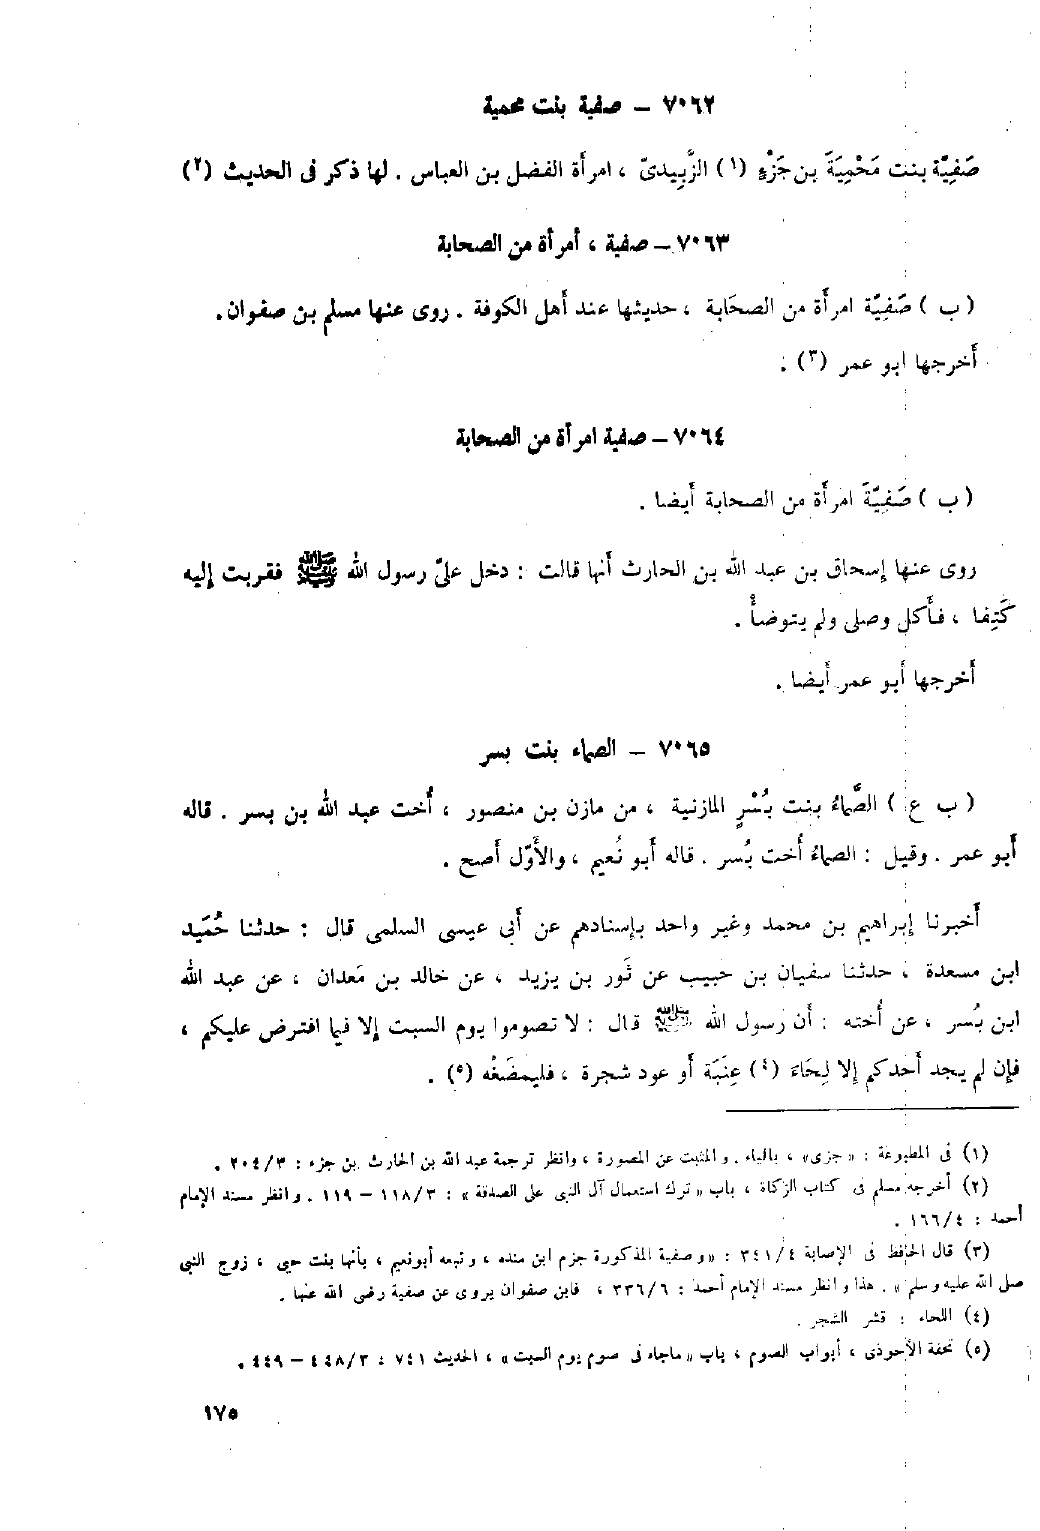 ٧٠٦٢ – صفية بنت محمية
صَفِيَّة بنت مَحْمِيَةَ بن جَزْءٍ (١) الزَّبِيدىّ ، امرأة الفضل بن العباس . لها ذكر فى الحديث (٢)
٧٠٦٣ – صفية ، أمرأة من الصحابة
( ب ) صَفِيَّة امرأة من الصحَابة ، حديثها عند أهل الكوفة . روى عنها مسلم بن صفوان .
أخرجها ابو عمر (٣) .
٧٠٦٤ – صفية امرأة من الصحابة
( ب ) صَفِيَّةَ امرأة من الصحابة أيضا .
روى عنها إسحاق بن عبد الله بن الحارث أنها قالت : دخل علىّ رسول الله ﷺ فقربت إليه
كَتِفا ، فأكل وصلى ولم يتوضأْ .
أخرجها أبو عمر أيضا .
٧٠٦٥ – الصماء بنت بسر
( ب ع ) الصَّماءُ بنت بُسْرٍ المازنية ، من مازن بن منصور ، أُخت عبد الله بن بسر . قاله
أبو عمر . وقيل : الصماءُ أُخت بُسر . قاله أبو نُعيم ، والأَوّل أصح .
أخبرنا إبراهيم بن محمد وغير واحد بإسنادهم عن أبى عيسى السلمى قال : حدثنا حُمَيد
ابن مسعدة ، حدثنا سفيان بن حبيب عن ثَور بن يزيد ، عن خالد بن مَعدان ، عن عبد الله
ابن بُسر ، عن أُخته : أن رسول الله ﷺ قال : لا تصوموا يوم السبت إلا فيما افترض عليكم ،
فإن لم يجد أحدكم إلا لِحَاءَ (٤) عِنَبَة أو عود شجرة ، فليمضَغْه (٥) .
(١) فى المطبوعة : «جزى» ، بالياء . والمثبت عن المصورة ، وانظر ترجمة عبد الله بن الحارث بن جزء : ٢٠٤/٣ .
(٢) أخرجه مسلم فى كتاب الزكاة ، باب «ترك استعمال آل النبى على الصدقة» : ١١٨/٣ – ١١٩ . وانظر مسند الإمام
أحمد : ١٦٦/٤ .
(٣) قال الحافظ فى الإصابة ٣٤١/٤ : «وصفية المذكورة جزم ابن منده ، وتبعه أبونعيم ، بأنها بنت حيى ، زوج النبى
صلى الله عليه وسلم» . هذا وانظر مسند الإمام أحمد : ٣٣٦/٦ ، فابن صفوان يروى عن صفية رضى الله عنها .
(٤) اللحاء : قشر الشجر .
(٥) تحفة الأحوذى ، أبواب الصوم ، باب «ماجاء فى صوم يوم السبت» ، الحديث ٧٤١ : ٤٤٨/٣ – ٤٤٩ .
١٧٥